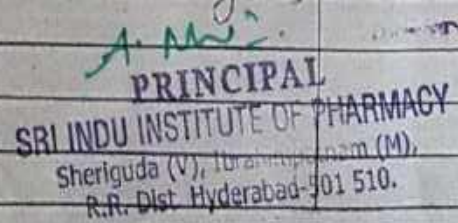 PRINCIPAL
SRI INDU INSTITUTE OF PHARMACY
Sheriguda (V), (M),
R.R. Dist Hyderabad-501 510.